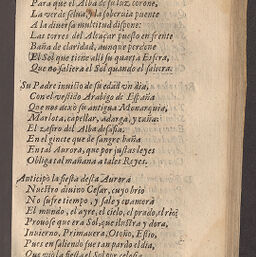 Para que el Alba de su luz, corone,
La verde selua, y la soberuia puente
A la diuersa multitud dispone:
Las torres del Alcaçar puesto en frente
Baña de claridad, aunque perdone
El Sol que tiene alli su quarta Esfera,
Que no saliera el Sol quando el saliera.
Su Padre inuiño de su edad vn dia,
Con el vestido Arabigo de España
Que nos dexò su antigua Monarquia,
Marlota, capellar, adarga, y caña:
El zafiro del Alba desafia.
En el ginete que de sangre baña
En tal Aurora, que por justas leyes
Obliga tal mañana a tales Reyes.
Anticipò la fiesta desta Aurora
Nuestro diuino Cesar, cuyo brio
No sufre tiempo, y sale y enamora
El mundo, el ayre, el cielo, el prado, el rio;
Prouose que era Sol, que ilustra y dora,
Inuierno, Primauera, Otoño, Estio,
Pues en saliendo fue tan pardo el dia,